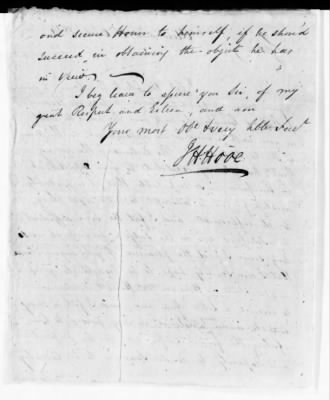 and secure Honor to himself, if he should
succeed in obtaining the objects he has
in view.
I beg leave to assure you Sir, of my
great Respect and Esteem, and am
Your most Obt & very hble Servt
J H Hooe